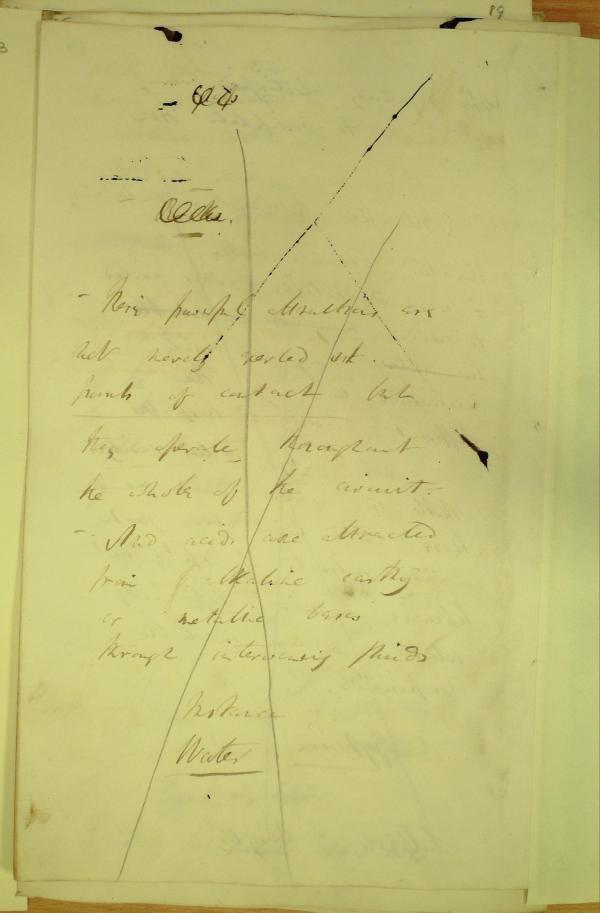 89
- These powerful attractions are
not merely exerted at
points of contact but
they operate throughout
the whole of the circuit.
- And acids are attracted
from alkaline earthy
or metallic bases
through intervening fluids
Instance
Water